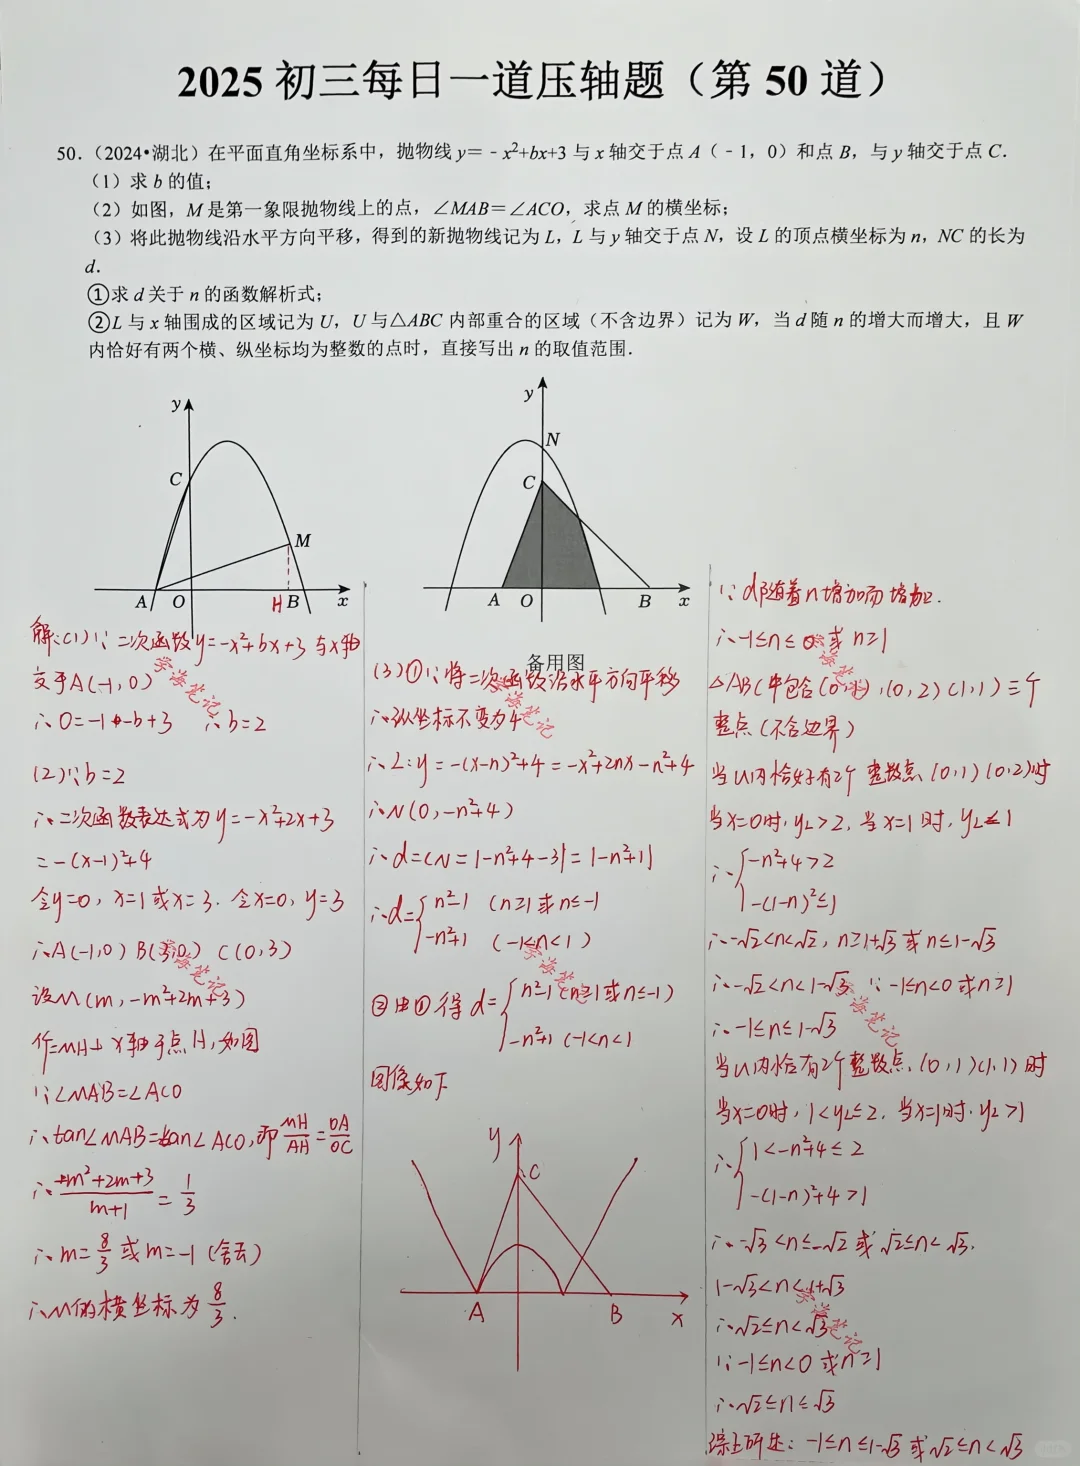 2025 初三每日一道压轴题（第 50 道）
50.（2024•湖北）在平面直角坐标系中，抛物线 y＝﹣x²+bx+3 与 x 轴交于点 A（﹣1，0）和点 B，与 y 轴交于点 C．
（1）求 b 的值；
（2）如图，M 是第一象限抛物线上的点，∠MAB＝∠ACO，求点 M 的横坐标；
（3）将此抛物线沿水平方向平移，得到的新抛物线记为 L，L 与 y 轴交于点 N，设 L 的顶点横坐标为 n，NC 的长为
d．
①求 d 关于 n 的函数解析式；
②L 与 x 轴围成的区域记为 U，U 与△ABC 内部重合的区域（不含边界）记为 W，当 d 随 n 的增大而增大，且 W
内恰好有两个横、纵坐标均为整数的点时，直接写出 n 的取值范围．
y
C
M
A
O
H
B
x
y
N
C
A
O
B
x
备用图
解:(1)∵二次函数y=-x²+bx+3 与x轴
交于A(-1,0)
∴0=-1-b+3 ∴b=2
(2)∵b=2
∴二次函数表达式为y=-x²+2x+3
=-(x-1)²+4
令y=0, x=1或x=3. 令x=0, y=3
∴A(-1,0) B(3,0) C(0,3)
设M(m, -m²+2m+3)
作MH⊥x轴于点H,如图
∵∠MAB=∠ACO
∴tan∠MAB=tan∠ACO,即MH/AH=OA/OC
∴(-m²+2m+3)/(m+1)=1/3
∴m=8/3 或m=-1 (舍去)
∴M的横坐标为8/3.
(3)①∵将二次函数沿水平方向平移
∴纵坐标不变为4
∴L:y=-(x-n)²+4=-x²+2nx-n²+4
∴N(0,-n²+4)
∴d=CN=|-n²+4-3|=|-n²+1|
∴d={n²-1 (n≥1或n≤-1)
-n²+1 (-1<n<1)
②由①得 d={n²-1 (n≥1或n≤-1)
-n²+1 (-1<n<1
图像如下
y
C
A
B
x
∵d随着n增加而增加.
∴-1≤n≤0或 n≥1
△ABC中包含(0,1),(0,2)(1,1)三个
整点(不含边界)
当U内恰好有2个整数点(0,1)(0,2)时
当x=0时,yL>2,当x=1时,yL≤1
∴{-n²+4>2
-(1-n)²≤1
∴-√2<n<√2, n≥1+√3 或n≤1-√3
∴-√2<n<1-√3 ∵-1≤n<0或n≥1
∴-1≤n≤1-√3
当U内恰有2个整数点,(0,1)(1,1)时
当x=0时,1<yL≤2,当x=1时,yL>1
∴{1<-n²+4≤2
-(1-n)²+4>1
∴-√3<n≤-√2 或√2≤n<√3.
1-√3<n<1+√3
∴√2≤n<√3
∵-1≤n<0 或n≥1
∴√2≤n≤√3
综上所述: -1≤n≤1-√3 或√2≤n<√3
学海笔记
学海笔记
学海笔记
学海笔记
学海笔记
学海笔记
学海笔记